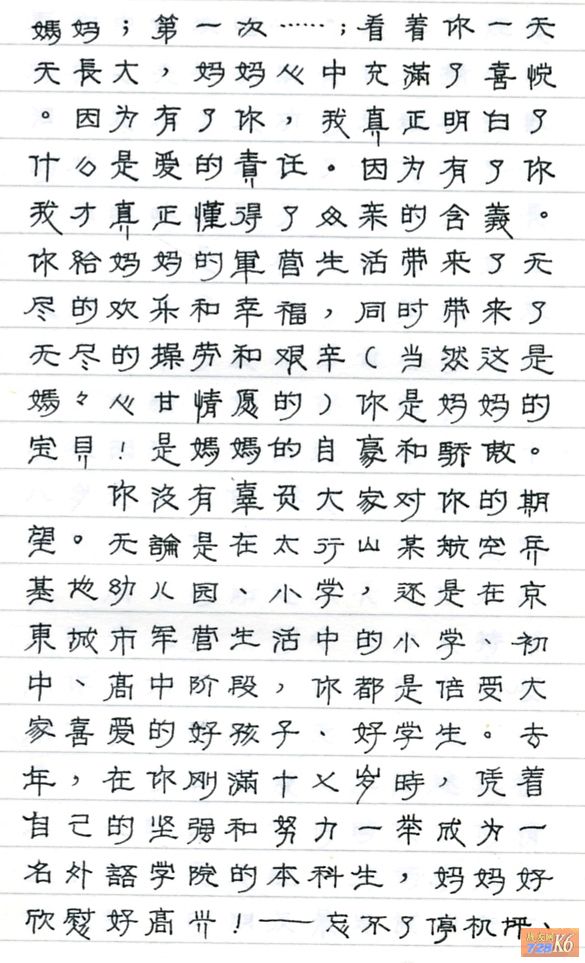 媽妈；第一次……；看着你一天
天長大，妈妈心中充滿了喜悦
。因为有了你，我真正明白了
什么是爱的責任。因为有了你
我才真正懂得了母亲的含義。
你給妈妈的軍营生活带来了无
尽的欢乐和幸福，同时带来了
无尽的操劳和艰辛（当然这是
媽々心甘情愿的）你是妈妈的
宝貝！是媽媽的自豪和骄傲。
你没有辜负大家对你的期
望。无論是在太行山某航空兵
基地幼儿园、小学，还是在京
東城市军营生活中的小学、初
中、高中阶段，你都是倍受大
家喜爱的好孩子、好学生。去
年，在你刚滿十八岁時，凭着
自己的坚强和努力一举成为一
名外語学院的本科生，妈妈好
欣慰好高兴！——忘不了停机坪、
728 K6